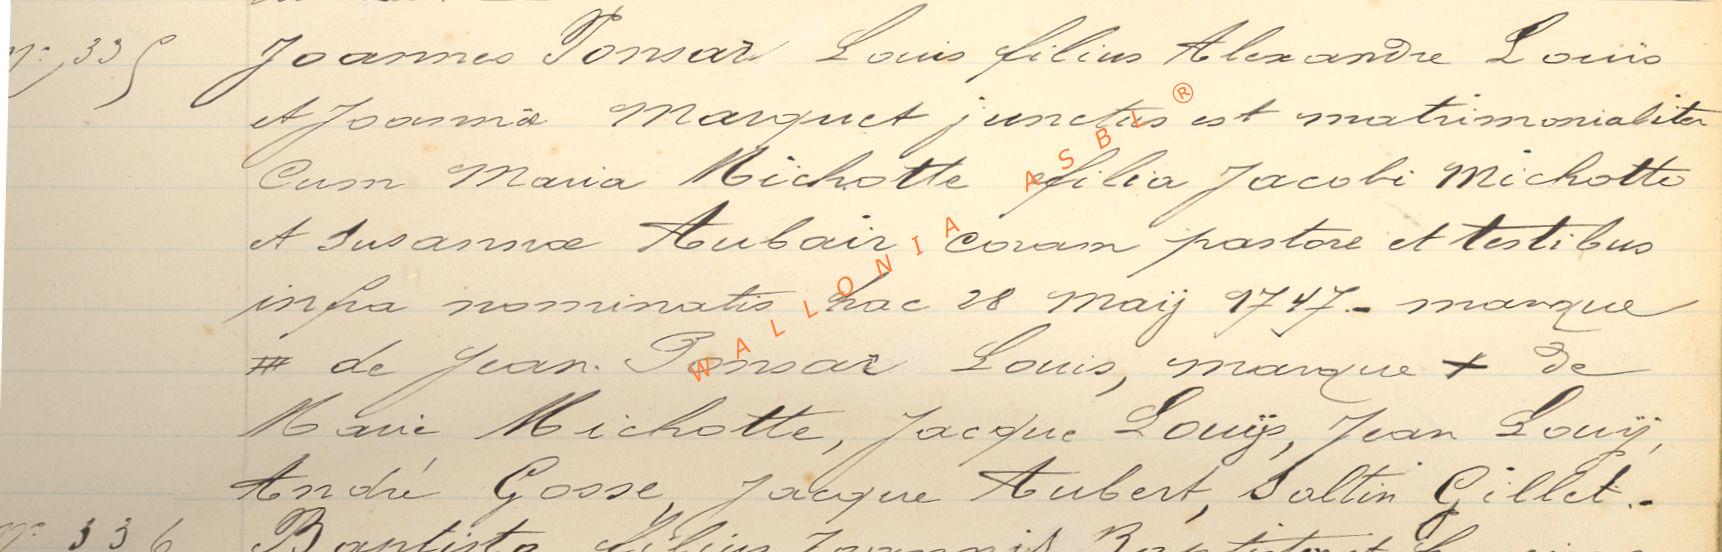 N° 335 Joannes Ponsar Louis filius Alexandre Louis
et Joannæ Marquet junctus est matrimonialiter
Cum Maria Michotte filia Jacobi Michotte
et Susannæ Aubair coram pastore et testibus
infra nominatis hac 28 Maij 1747.- marque
# de Jean Ponsar Louis, marque + de
Marie Michotte, Jacque Louÿs, Jean Louÿ,
André Gosse, Jacque Aubert, Saltin Gillet.-
N° 336 Baptista filius Joannis
WALLONIA ASBL ®